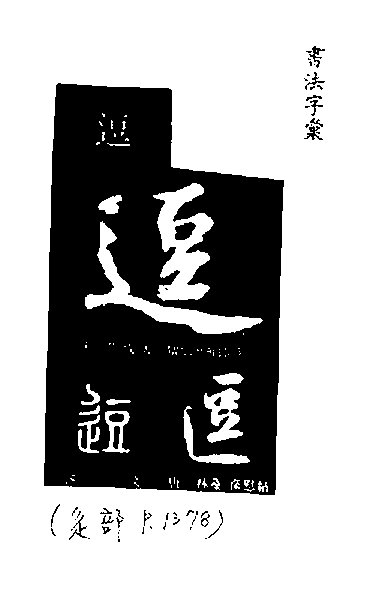 書法字彙
逗
逗
逗
逗
(辵部 P.1378)